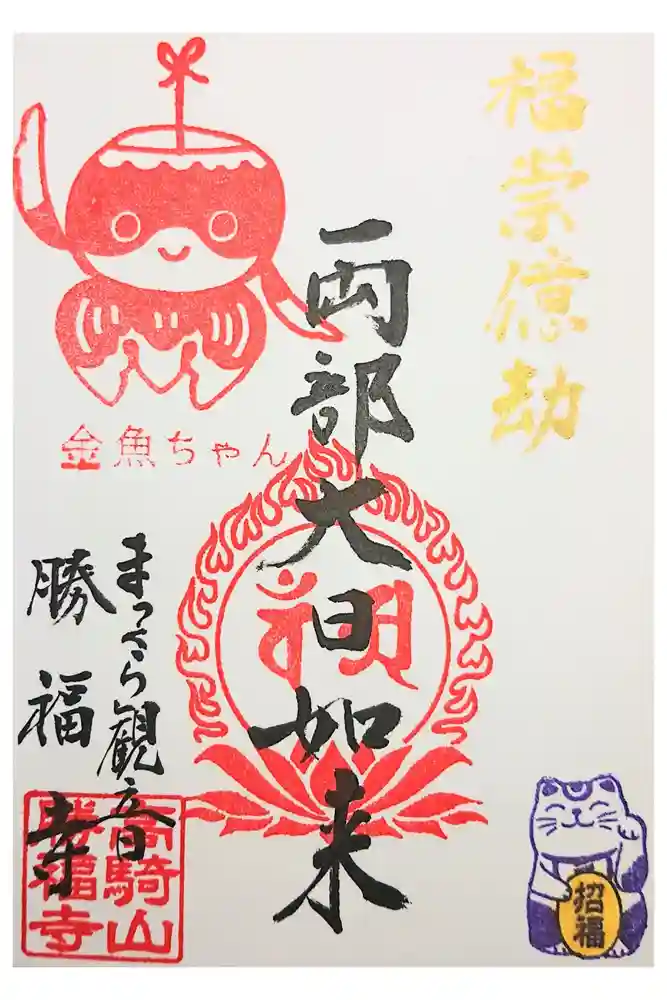 福崇億劫
両部大日如来
金魚ちゃん
まっさら観音
勝福寺
高騎山
勝福寺
招福